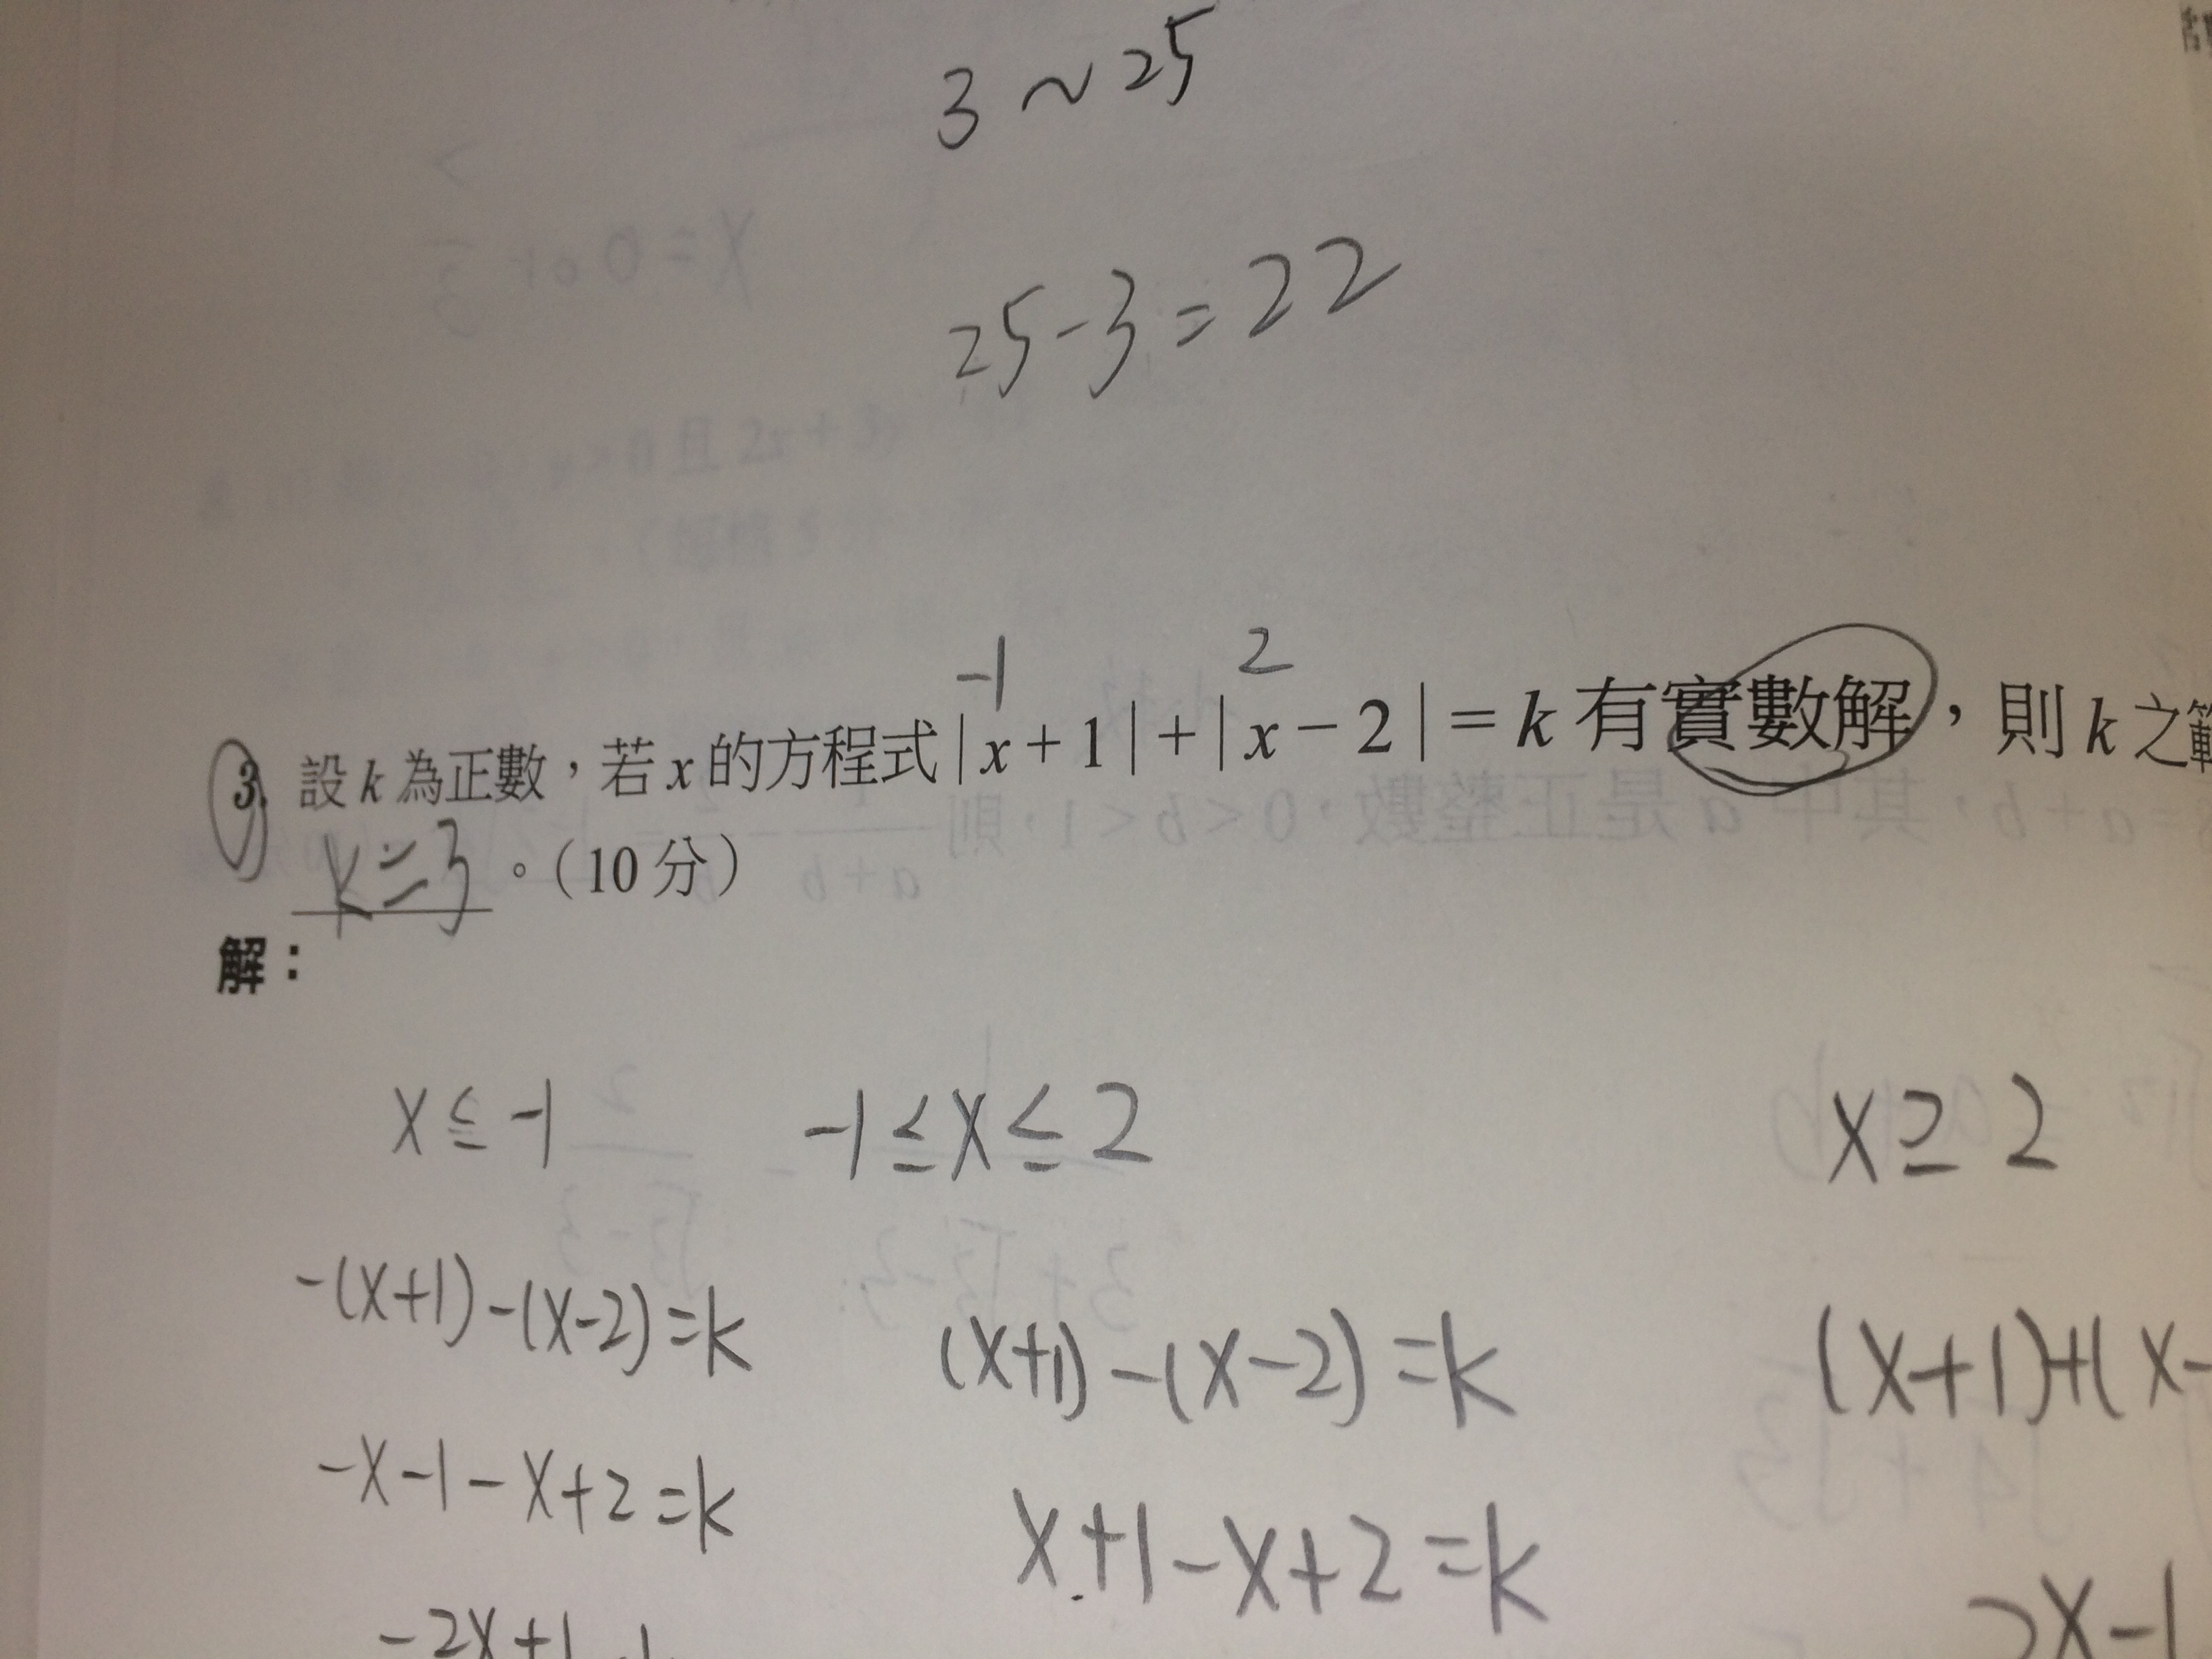 3 ~ 25
25-3=22
-1 2
3. 設 k 為正數，若 x 的方程式 |x+1|+|x-2|=k 有實數解，則 k 之範
k≥3 。(10 分)
解：
x≤-1 -1≤x≤2 x≥2
-(x+1)-(x-2)=k (x+1)-(x-2)=k (x+1)+(x-
-x-1-x+2=k x+1-x+2=k
-2x+1 2x-1